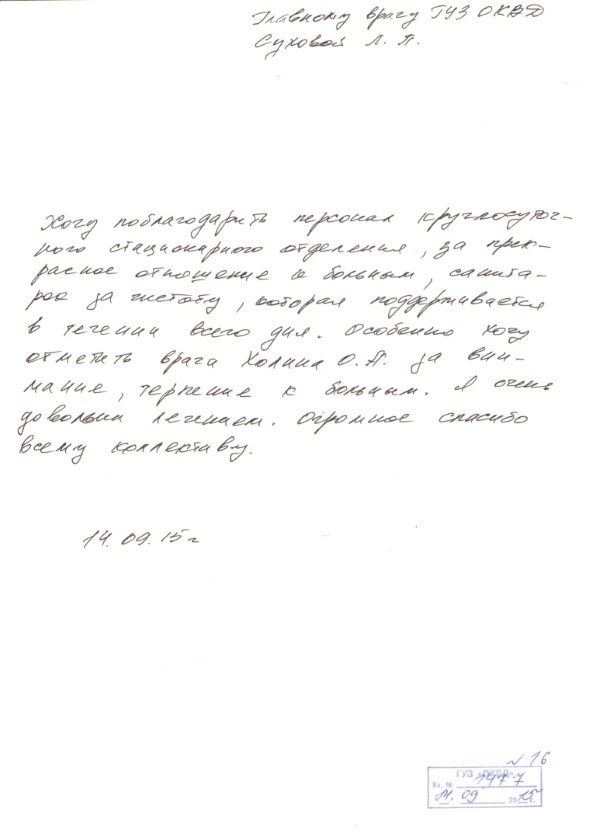 Главному врагу ГУЗ ОКВД
Суховой Л. П.
Хочу поблагодарить персонал круглосуточ-
ного стационарного отделения, за прек-
расное отношение к больным, санита-
рок за чистоту, которая поддерживается
в течении всего дня. Особенно хочу
отметить врача Холина О.А. за вни-
мание, терпение к больным. Я очень
довольна лечением. Огромное спасибо
всему коллективу.
14.09.15г
N 16
ГУЗ «ОКВД»
Вх. № 1477
14. 09 2015г.